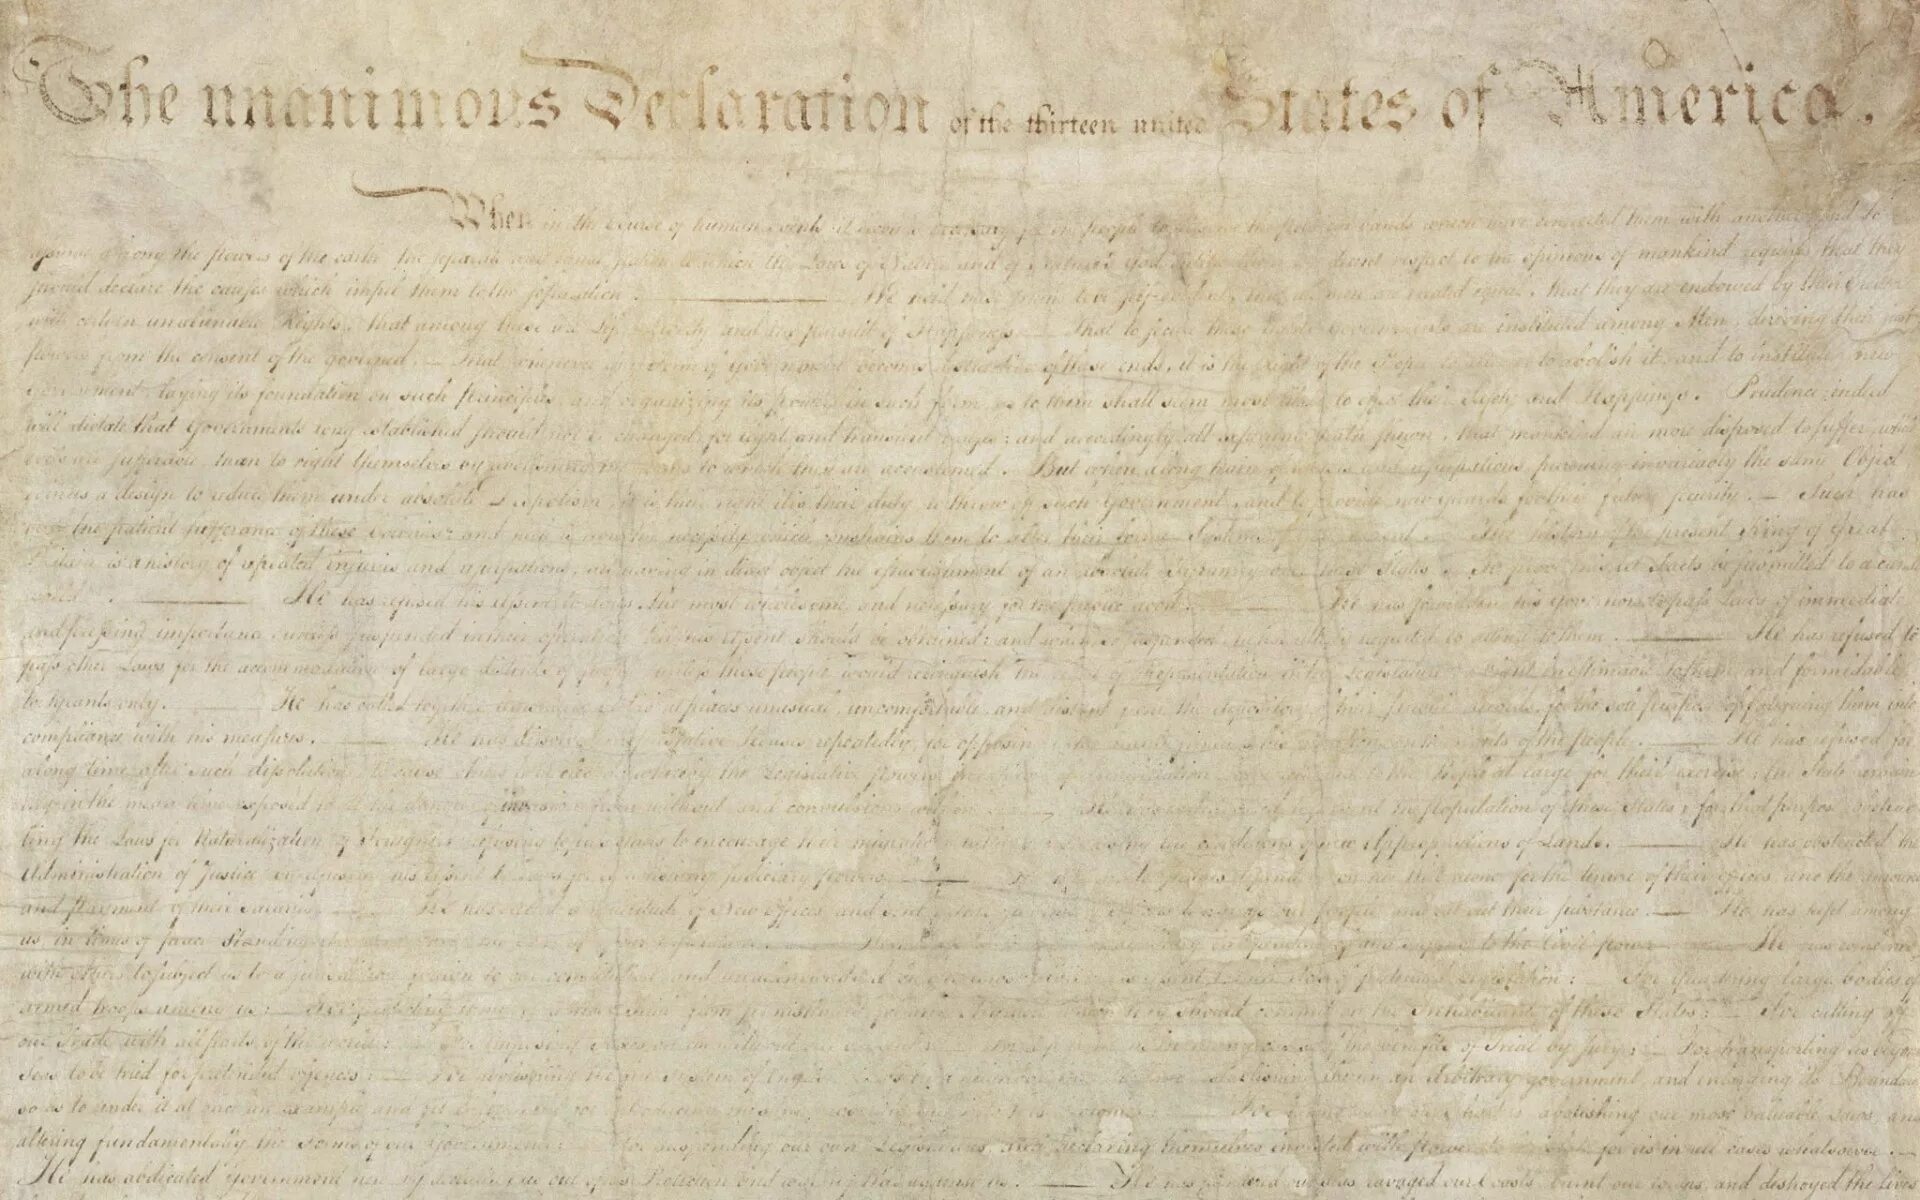 The unanimous Declaration of the thirteen united States of America.
When in the Course of human events it becomes necessary for one People to dissolve the political bands which have connected them with another and to
assume among the powers of the earth the separate and equal station to which the Laws of Nature and of Nature's God entitle them a decent respect to the opinions of mankind requires that they
should declare the causes which impel them to the separation. We hold these truths to be self-evident, that all men are created equal, that they are endowed by their Creator
with certain unalienable Rights, that among these are Life, Liberty and the pursuit of Happiness. — That to secure these rights, Governments are instituted among Men, deriving their just
powers from the consent of the governed, — That whenever any Form of Government becomes destructive of these ends, it is the Right of the People to alter or to abolish it, and to institute new
Government, laying its foundation on such principles, and organizing its powers in such form, as to them shall seem most likely to effect their Safety and Happiness. Prudence, indeed,
will dictate that Governments long established should not be changed for light and transient causes; and accordingly all experience hath shewn, that mankind are more disposed to suffer, while
evils are sufferable, than to right themselves by abolishing the forms to which they are accustomed. But when a long train of abuses and usurpations, pursuing invariably the same Object
evinces a design to reduce them under absolute Despotism, it is their right, it is their duty, to throw off such Government, and to provide new Guards for their future security. — Such has
been the patient sufferance of these Colonies; and such is now the necessity which constrains them to alter their former Systems of Government. The history of the present King of Great
Britain is a history of repeated injuries and usurpations, all having in direct object the establishment of an absolute Tyranny over these States. To prove this, let Facts be submitted to a candid
world. He has refused his Assent to Laws, the most wholesome and necessary for the public good. He has forbidden his Governors to pass Laws of immediate
and pressing importance, unless suspended in their operation till his Assent should be obtained; and when so suspended, he has utterly neglected to attend to them. He has refused to
pass other Laws for the accommodation of large districts of people, unless those people would relinquish the right of Representation in the Legislature, a right inestimable to them and formidable
to tyrants only. He has called together legislative bodies at places unusual, uncomfortable, and distant from the depository of their public Records, for the sole purpose of fatiguing them into
compliance with his measures. He has dissolved Representative Houses repeatedly, for opposing with manly firmness his invasions on the rights of the people. He has refused for
a long time, after such dissolutions, to cause others to be elected; whereby the Legislative powers, incapable of Annihilation, have returned to the People at large for their exercise; the State remain-
ing in the mean time exposed to all the dangers of invasion from without, and convulsions within. He has endeavoured to prevent the population of these States; for that purpose obstruc-
ting the Laws for Naturalization of Foreigners; refusing to pass others to encourage their migrations hither, and raising the conditions of new Appropriations of Lands. He has obstructed the
Administration of Justice, by refusing his Assent to Laws for establishing Judiciary powers. He has made Judges dependent on his Will alone, for the tenure of their offices, and the amount
and payment of their salaries. He has erected a multitude of New Offices, and sent hither swarms of Officers to harass our people, and eat out their substance. He has kept among
us, in times of peace, Standing Armies without the Consent of our legislatures. He has affected to render the Military independent of and superior to the Civil power. He has combined
with others to subject us to a jurisdiction foreign to our constitution, and unacknowledged by our laws; giving his Assent to their Acts of pretended Legislation: For Quartering large bodies of
armed troops among us: For protecting them, by a mock Trial, from punishment for any Murders which they should commit on the Inhabitants of these States: For cutting off
our Trade with all parts of the world: For imposing Taxes on us without our Consent: For depriving us in many cases, of the benefits of Trial by Jury: For transporting us beyond
Seas to be tried for pretended offences: For abolishing the free System of English Laws in a neighbouring Province, establishing therein an Arbitrary government, and enlarging its Boundaries
so as to render it at once an example and fit instrument for introducing the same absolute rule into these Colonies: For taking away our Charters, abolishing our most valuable Laws, and
altering fundamentally the Forms of our Governments: For suspending our own Legislatures, and declaring themselves invested with power to legislate for us in all cases whatsoever. —
He has abdicated Government here, by declaring us out of his Protection and waging War against us. He has plundered our seas, ravaged our Coasts, burnt our towns, and destroyed the lives